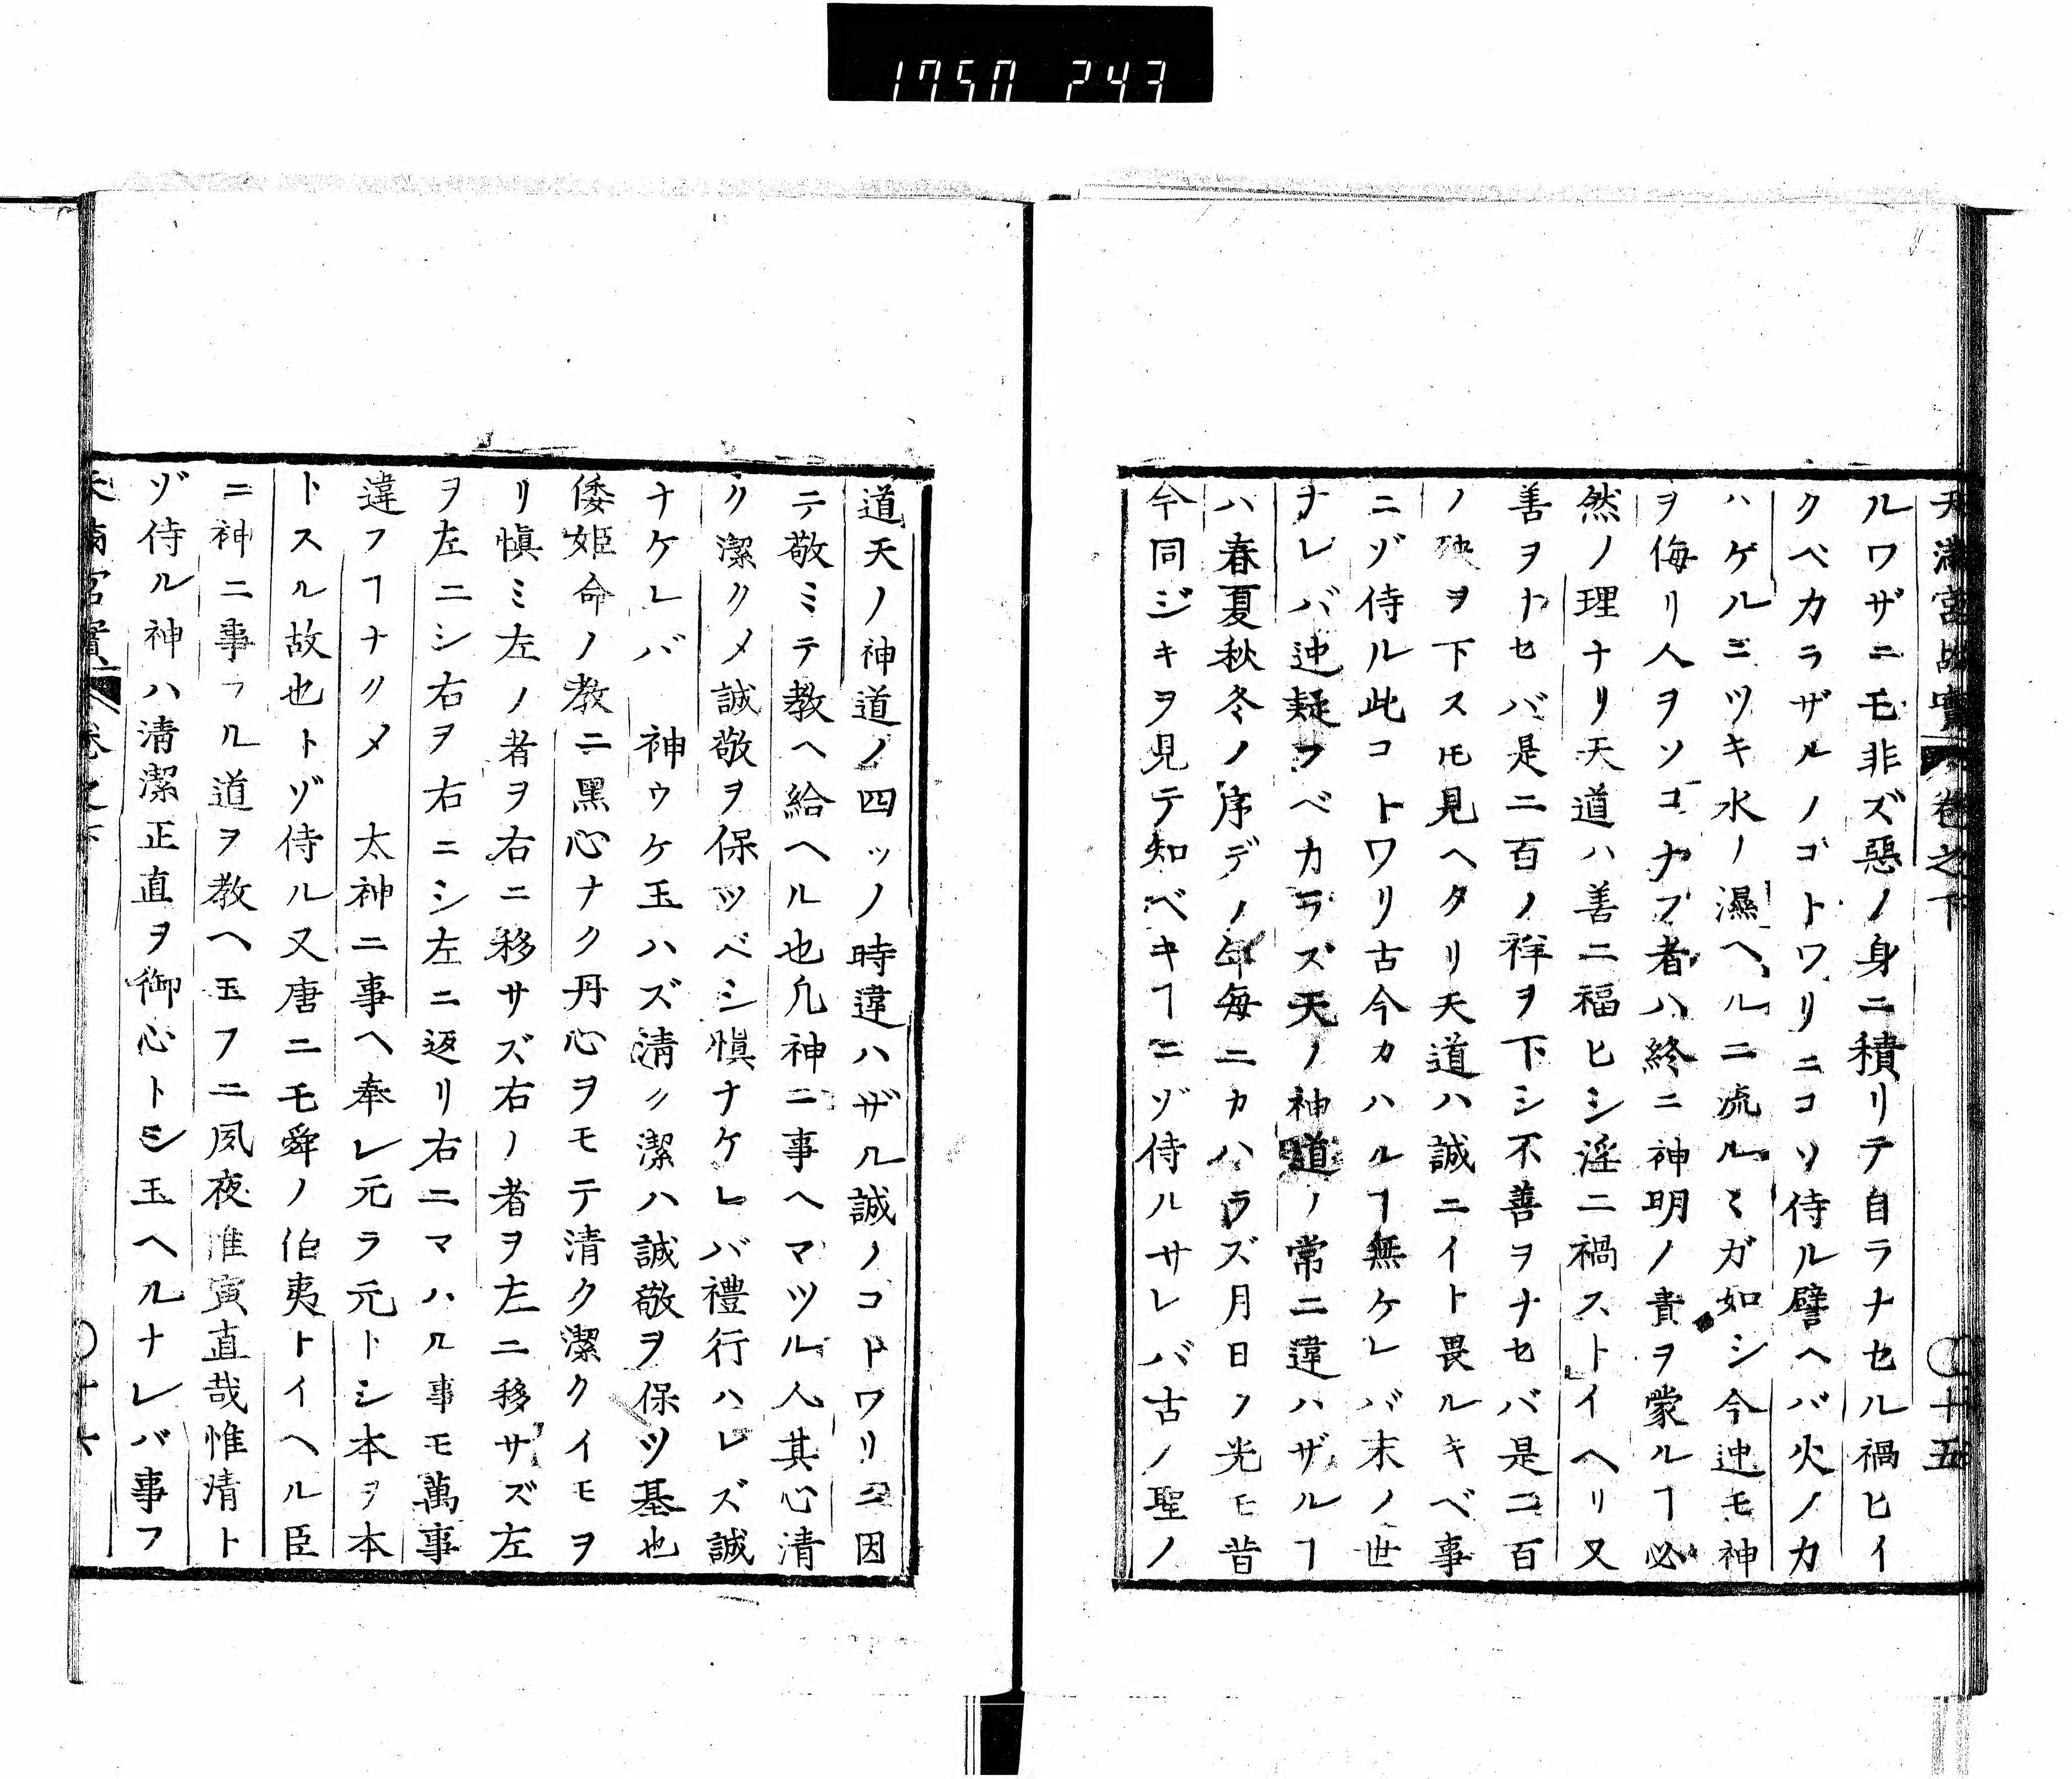 1750 243
天満宮故實 卷之下 〇十五
ルワザニモ非ズ惡ノ身ニ積リテ自ラナセル禍ヒイ
クベカラザルノゴトワリニコソ侍ル譬ヘバ火ノカ
ハゲルニツキ水ノ濕ヘルニ流ルヽガ如シ今迚モ神
ヲ侮リ人ヲソコナフ者ハ終ニ神明ノ責ヲ蒙ルヿ必
然ノ理ナリ天道ハ善ニ福ヒシ淫ニ禍ストイヘリ又
善ヲトセバ是ニ百ノ祥ヲ下シ不善ヲナセバ是ニ百
ノ殃ヲ下スモ見ヘタリ天道ハ誠ニイト畏ルキベ事
ニゾ侍ル此コトワリ古今カハルヿ無ケレバ末ノ世
ナレバ迚疑フベカラズ天ノ神道ノ常ニ違ハザルヿ
ハ春夏秋冬ノ序デノ年毎ニカハラズ月日ノ光モ昔
今同ジキヲ見テ知ベキヿニゾ侍ルサレバ古ノ聖ノ
道天ノ神道ノ四ッノ時違ハザル誠ノコトワリニ因
テ敬ミテ教ヘ給ヘル也凡神ニ事ヘマツル人其心清
ク潔クメ誠敬ヲ保ツベシ愼ナケレバ禮行ハレズ誠
ナケレバ 神ウケ玉ハズ清ク潔ハ誠敬ヲ保ツ基也
倭姫命ノ教ニ黑心ナク丹心ヲモテ清ク潔クイモヲ
リ愼ミ左ノ者ヲ右ニ移サズ右ノ者ヲ左ニ移サズ左
ヲ左ニシ右ヲ右ニシ左ニ返リ右ニマハル事モ萬事
違フヿナクメ 太神ニ事ヘ奉レ元ラ元トシ本ヲ本
トスル故也トゾ侍ル又唐ニモ舜ノ伯夷トイヘル臣
ニ神ニ事フル道ヲ教ヘ玉フニ夙夜惟寅直哉惟清ト
ゾ侍ル神ハ清潔正直ヲ御心トシ玉ヘルナレバ事フ